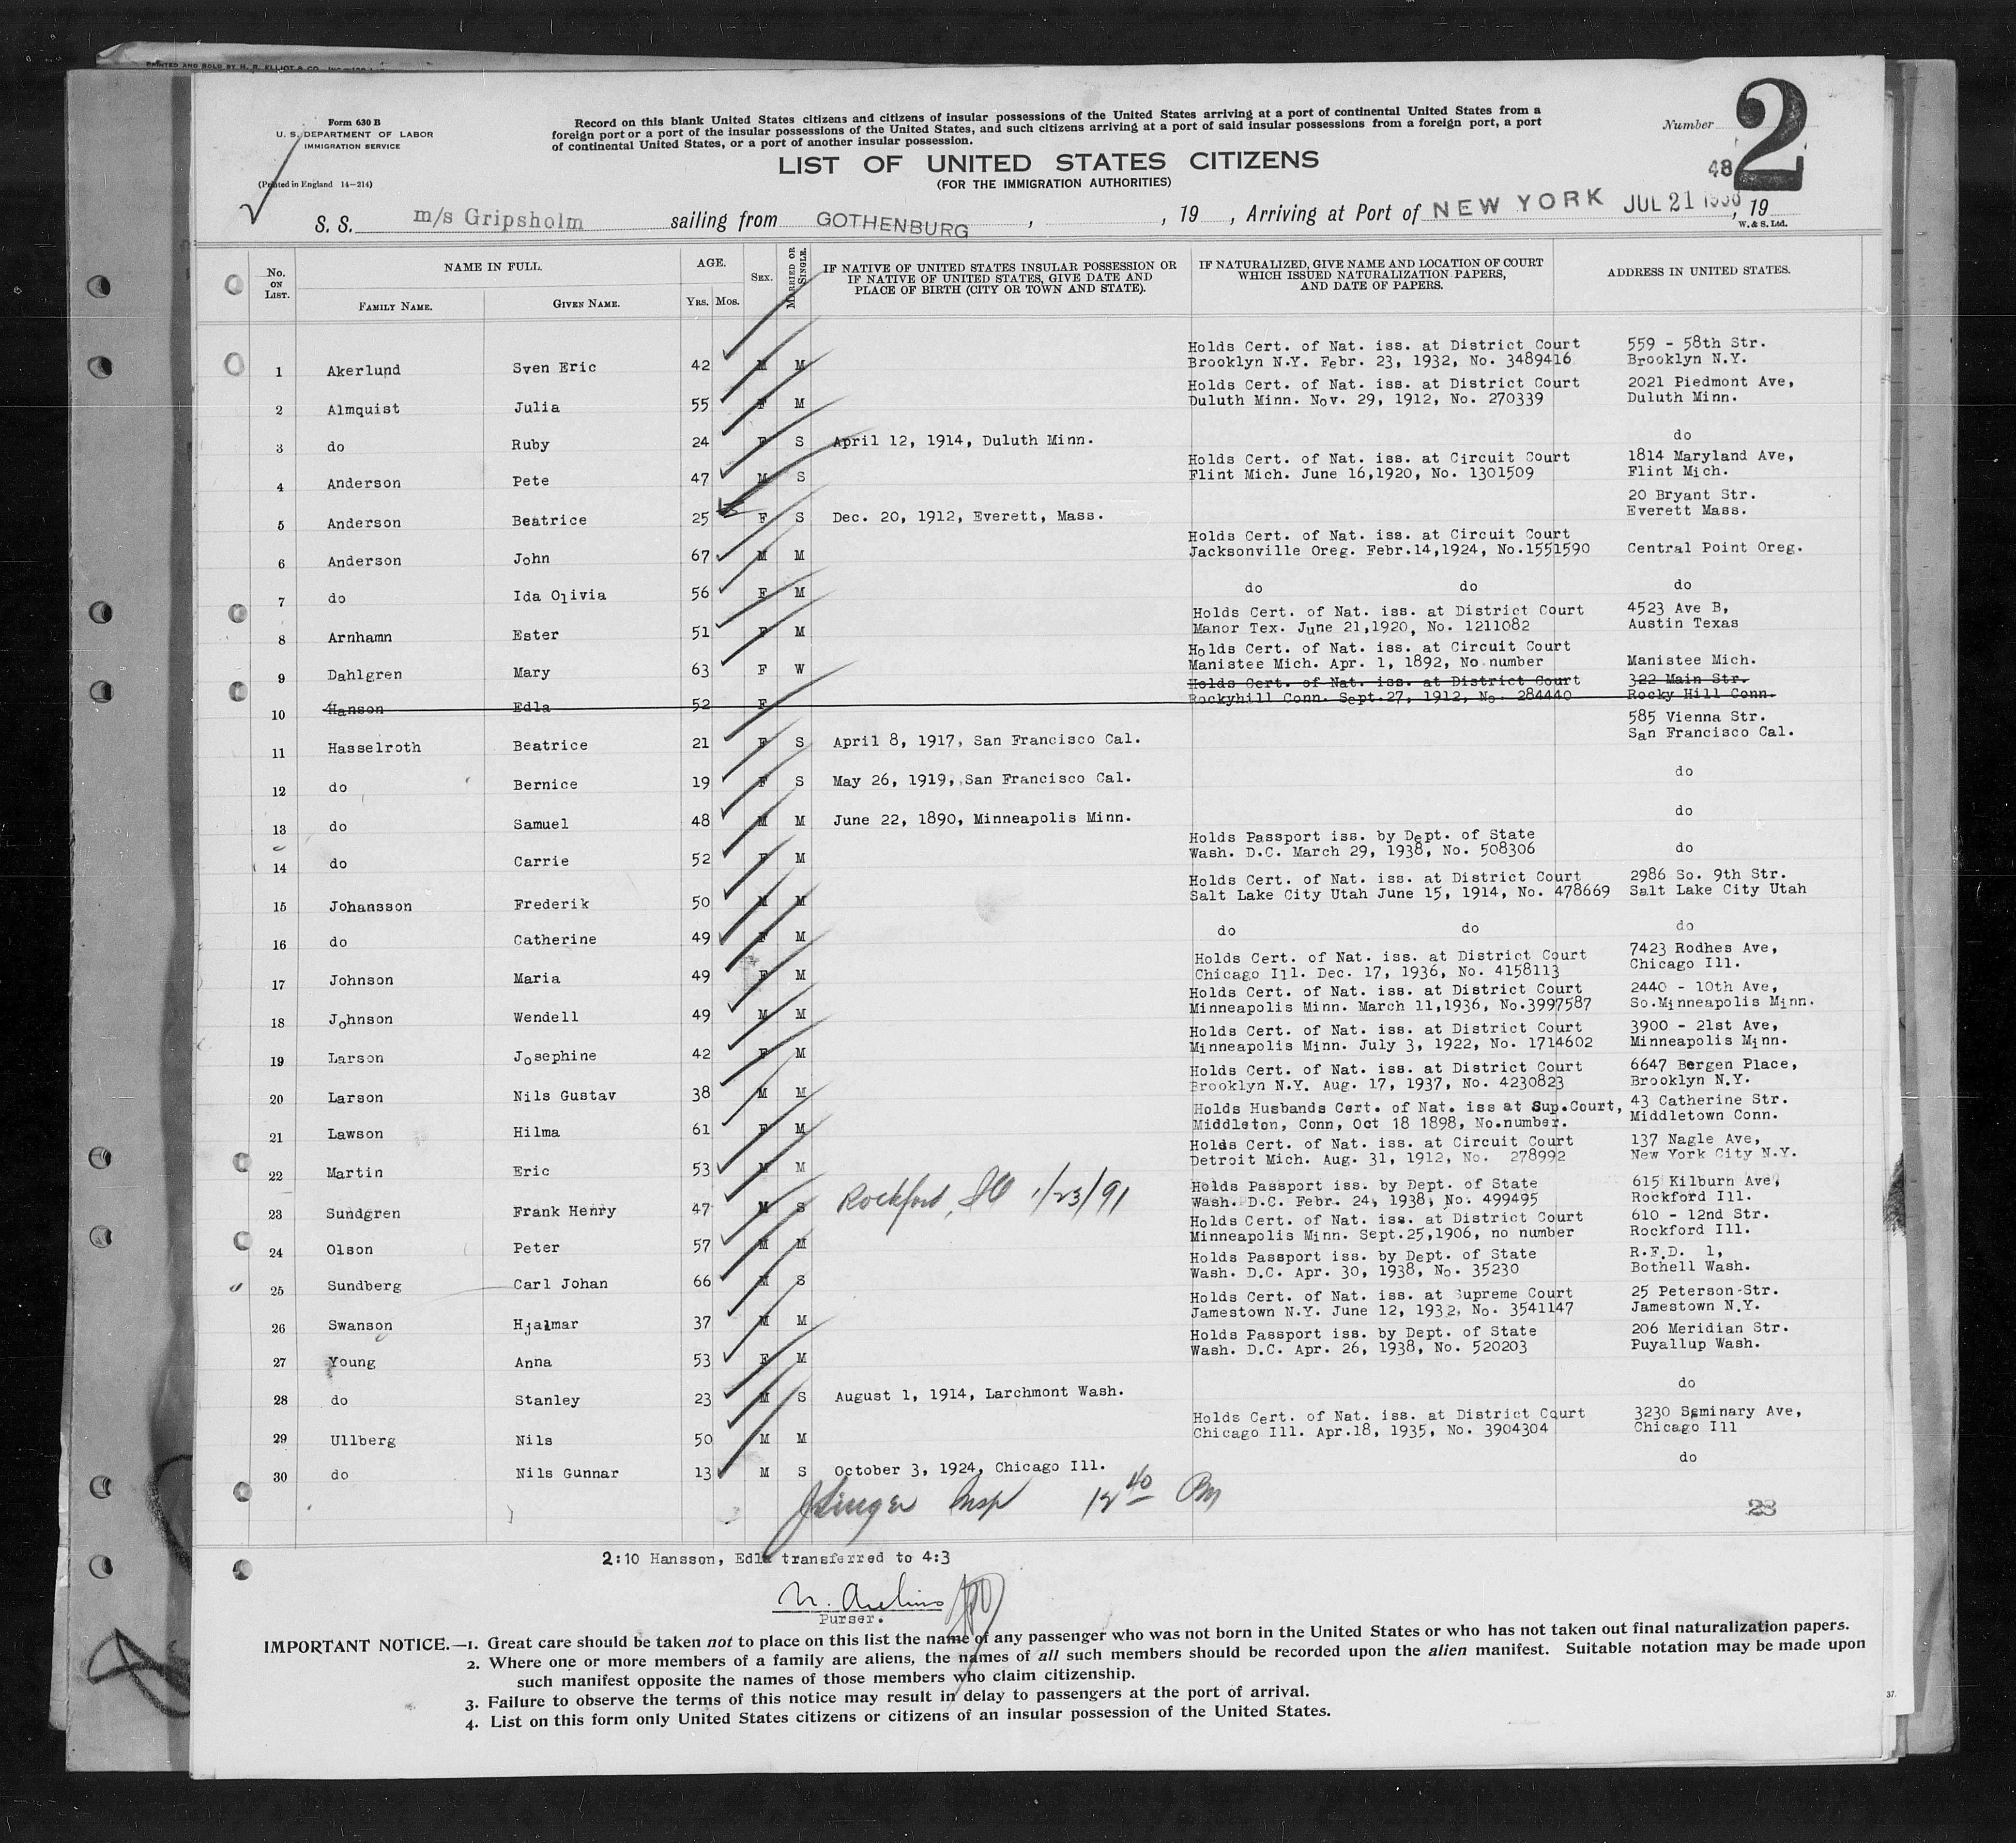 PRINTED AND SOLD BY H. R. ELLIOT & CO. INC
Form 630 B
U. S. DEPARTMENT OF LABOR
IMMIGRATION SERVICE
(Printed in England 14-214)
Record on this blank United States citizens and citizens of insular possessions of the United States arriving at a port of continental United States from a
foreign port or a port of the insular possessions of the United States, and such citizens arriving at a port of said insular possessions from a foreign port, a port
of continental United States, or a port of another insular possession.
LIST OF UNITED STATES CITIZENS
(FOR THE IMMIGRATION AUTHORITIES)
Number 2
48
S. S. m/s Gripsholm sailing from GOTHENBURG , , 19 , Arriving at Port of NEW YORK JUL 21 1938, 19
W. & S. Ltd.
No. ON LIST. NAME IN FULL. AGE. SEX. MARRIED OR SINGLE. IF NATIVE OF UNITED STATES INSULAR POSSESSION OR IF NATIVE OF UNITED STATES, GIVE DATE AND PLACE OF BIRTH (CITY OR TOWN AND STATE). IF NATURALIZED, GIVE NAME AND LOCATION OF COURT WHICH ISSUED NATURALIZATION PAPERS, AND DATE OF PAPERS. ADDRESS IN UNITED STATES.
FAMILY NAME. GIVEN NAME. YRS. MOS.
Holds Cert. of Nat. iss. at District Court 559 - 58th Str.
1 Akerlund Sven Eric 42 M M Brooklyn N.Y. Febr. 23, 1932, No. 3489416 Brooklyn N.Y.
Holds Cert. of Nat. iss. at District Court 2021 Piedmont Ave,
2 Almquist Julia 55 F M Duluth Minn. Nov. 29, 1912, No. 270339 Duluth Minn.
3 do Ruby 24 F S April 12, 1914, Duluth Minn. do
Holds Cert. of Nat. iss. at Circuit Court 1814 Maryland Ave,
4 Anderson Pete 47 M S Flint Mich. June 16,1920, No. 1301509 Flint Mich.
20 Bryant Str.
5 Anderson Beatrice 25 F S Dec. 20, 1912, Everett, Mass. Everett Mass.
Holds Cert. of Nat. iss. at Circuit Court
6 Anderson John 67 M M Jacksonville Oreg. Febr.14,1924, No.1551590 Central Point Oreg.
7 do Ida Olivia 56 F M do do do
Holds Cert. of Nat. iss. at District Court 4523 Ave B,
8 Arnhamn Ester 51 F M Manor Tex. June 21,1920, No. 1211082 Austin Texas
Holds Cert. of Nat. iss. at Circuit Court
9 Dahlgren Mary 63 F W Manistee Mich. Apr. 1, 1892, No number Manistee Mich.
Holds Cert. of Nat. iss. at District Court 322 Main Str.
10 Hanson Edla 52 F Rockyhill Conn. Sept.27, 1912, No. 284440 Rocky Hill Conn.
585 Vienna Str.
11 Hasselroth Beatrice 21 F S April 8, 1917, San Francisco Cal. San Francisco Cal.
12 do Bernice 19 F S May 26, 1919, San Francisco Cal. do
13 do Samuel 48 M M June 22, 1890, Minneapolis Minn. do
Holds Passport iss. by Dept. of State
14 do Carrie 52 F M Wash. D.C. March 29, 1938, No. 508306 do
Holds Cert. of Nat. iss. at District Court 2986 So. 9th Str.
15 Johansson Frederik 50 M M Salt Lake City Utah June 15, 1914, No. 478669 Salt Lake City Utah
16 do Catherine 49 F M do do do
Holds Cert. of Nat. iss. at District Court 7423 Rodhes Ave,
17 Johnson Maria 49 F M Chicago Ill. Dec. 17, 1936, No. 4158113 Chicago Ill.
Holds Cert. of Nat. iss. at District Court 2440 - 10th Ave,
18 Johnson Wendell 49 M M Minneapolis Minn. March 11,1936, No.3997587 So.Minneapolis Minn.
Holds Cert. of Nat. iss. at District Court 3900 - 21st Ave,
19 Larson Josephine 42 F M Minneapolis Minn. July 3, 1922, No. 1714602 Minneapolis Minn.
Holds Cert. of Nat. iss. at District Court 6647 Bergen Place,
20 Larson Nils Gustav 38 M M Brooklyn N.Y. Aug. 17, 1937, No. 4230823 Brooklyn N.Y.
Holds Husbands Cert. of Nat. iss at Sup.Court, 43 Catherine Str.
21 Lawson Hilma 61 F M Middleton, Conn, Oct 18 1898, No.number. Middletown Conn.
Holds Cert. of Nat. iss. at Circuit Court 137 Nagle Ave,
22 Martin Eric 53 M M Detroit Mich. Aug. 31, 1912, No. 278992 New York City N.Y.
Holds Passport iss. by Dept. of State 615 Kilburn Ave,
23 Sundgren Frank Henry 47 M S Rockford, Ill 1/23/91 Wash. D.C. Febr. 24, 1938, No. 499495 Rockford Ill.
Holds Cert. of Nat. iss. at District Court 610 - 12nd Str.
24 Olson Peter 57 M M Minneapolis Minn. Sept.25,1906, no number Rockford Ill.
Holds Passport iss. by Dept. of State R.F.D. 1,
25 Sundberg Carl Johan 66 M S Wash. D.C. Apr. 30, 1938, No. 35230 Bothell Wash.
Holds Cert. of Nat. iss. at Supreme Court 25 Peterson-Str.
26 Swanson Hjalmar 37 M M Jamestown N.Y. June 12, 1932, No. 3541147 Jamestown N.Y.
Holds Passport iss. by Dept. of State 206 Meridian Str.
27 Young Anna 53 F M Wash. D.C. Apr. 26, 1938, No. 520203 Puyallup Wash.
28 do Stanley 23 M S August 1, 1914, Larchmont Wash. do
Holds Cert. of Nat. iss. at District Court 3230 Seminary Ave,
29 Ullberg Nils 50 M M Chicago Ill. Apr.18, 1935, No. 3904304 Chicago Ill
30 do Nils Gunnar 13 M S October 3, 1924, Chicago Ill. do
Insp 12 40 Pm
23
2:10 Hansson, Edla transferred to 4:3
Purser.
IMPORTANT NOTICE.—1. Great care should be taken not to place on this list the name of any passenger who was not born in the United States or who has not taken out final naturalization papers.
2. Where one or more members of a family are aliens, the names of all such members should be recorded upon the alien manifest. Suitable notation may be made upon
such manifest opposite the names of those members who claim citizenship.
3. Failure to observe the terms of this notice may result in delay to passengers at the port of arrival.
4. List on this form only United States citizens or citizens of an insular possession of the United States.
37.